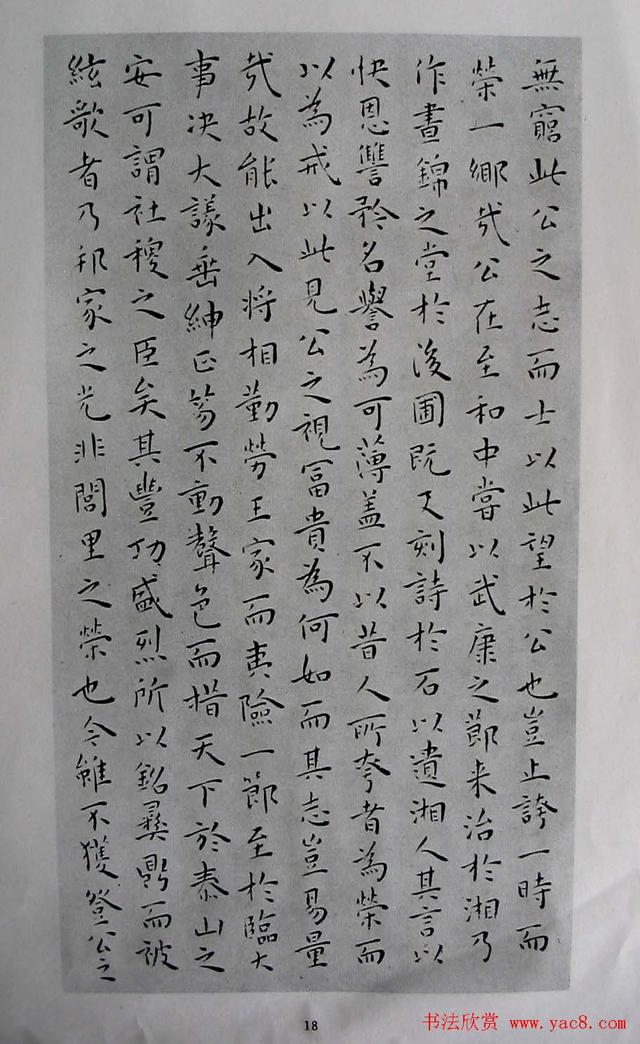 無窮此公之志而士以此望於公也豈止誇一時而
榮一鄉哉公在至和中嘗以武康之節来治於湘乃
作晝錦之堂於後圃既又刻詩於石以遺湘人其言以
快恩讐矜名譽為可薄盖不以昔人所夸者為榮而
以為戒以此見公之視冨貴為何如而其志豈易量
哉故能出入将相勤勞王家而夷險一節至於臨大
事决大議垂紳正笏不動聲色而措天下於泰山之
安可謂社稷之臣矣其豐功盛烈所以銘彝鼎而被
絃歌者乃邦家之光非閭里之榮也余雖不獲登公之
18
书法欣赏 www.yac8.com